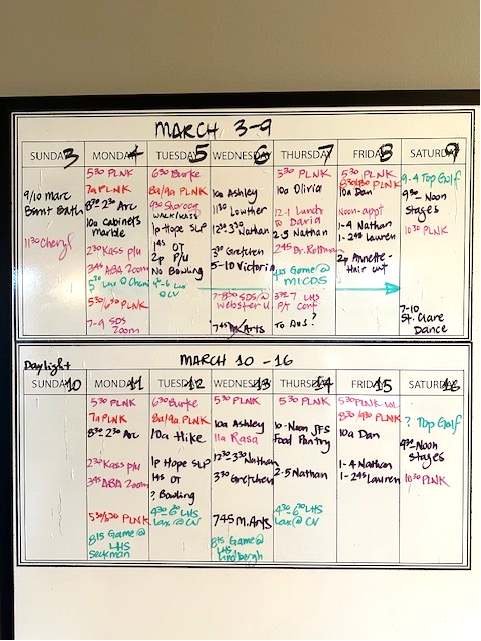 MARCH 3-9
SUNDAY 3
MONDAY 4
TUESDAY 5
WEDNESDAY 6
THURSDAY 7
FRIDAY 8
SATURDAY 9
9/10 Marc
Bsmt Bath
1130 Cheryl
530 PLNK
7a PLNK
830-230 Arc
10a Cabinets
Marble
230 Kass p/u
345 ABA Zoom
530/630 PLNK
7-9 SDS
Zoom
630 Burke
8a/9a PLNK
930
WALK/KASS
1p Hope SLP
145 OT
2p P/U
No Bowling
10a Ashley
1130 Lowther
1230-330 Nathan
330 Gretchen
5-10 Victoria
7-830 SDS @
Webster U
745 M. Arts
530 PLNK
10a Olivia
12-1 Lunch
To Daria
2-5 Nathan
245 Dr. Rottman
Game @
MICDS
LHS
P/T Conf
To AUS?
530 PLNK
830/930 PLNK
10a Dan
Noon-appt
1-4 Nathan
1-245 Lauren
2p Annette-
Hair cut
9-4 Top Golf
930-Noon
Stages
1030 PLNK
7-10
St. Clare
Dance
Daylight
MARCH 10-16
SUNDAY 10
MONDAY 11
TUESDAY 12
WEDNESDAY 13
THURSDAY 14
FRIDAY 15
SATURDAY 16
530 PLNK
7a PLNK
830-230 Arc
230 Kass p/u
345 ABA Zoom
530/630 PLNK
815 Game @
LHS
Seckman
630 Burke
8a/9a PLNK
10a Hike
1p Hope SLP
145 OT
? Bowling
430-630 LHS
Lax @ CV
530 PLNK
10a Ashley
11a Rasa
1230-330 Nathan
330 Gretchen
745 M. Arts
815 Game @
LHS
Lindbergh
530 PLNK
10-Noon JFS
Food Pantry
2-5 Nathan
430-630 LHS
Lax @ CV
530 PLNK
830/930 PLNK
10a Dan
1-4 Nathan
1-245 Lauren
? Top Golf
930-Noon
Stages
1030 PLNK